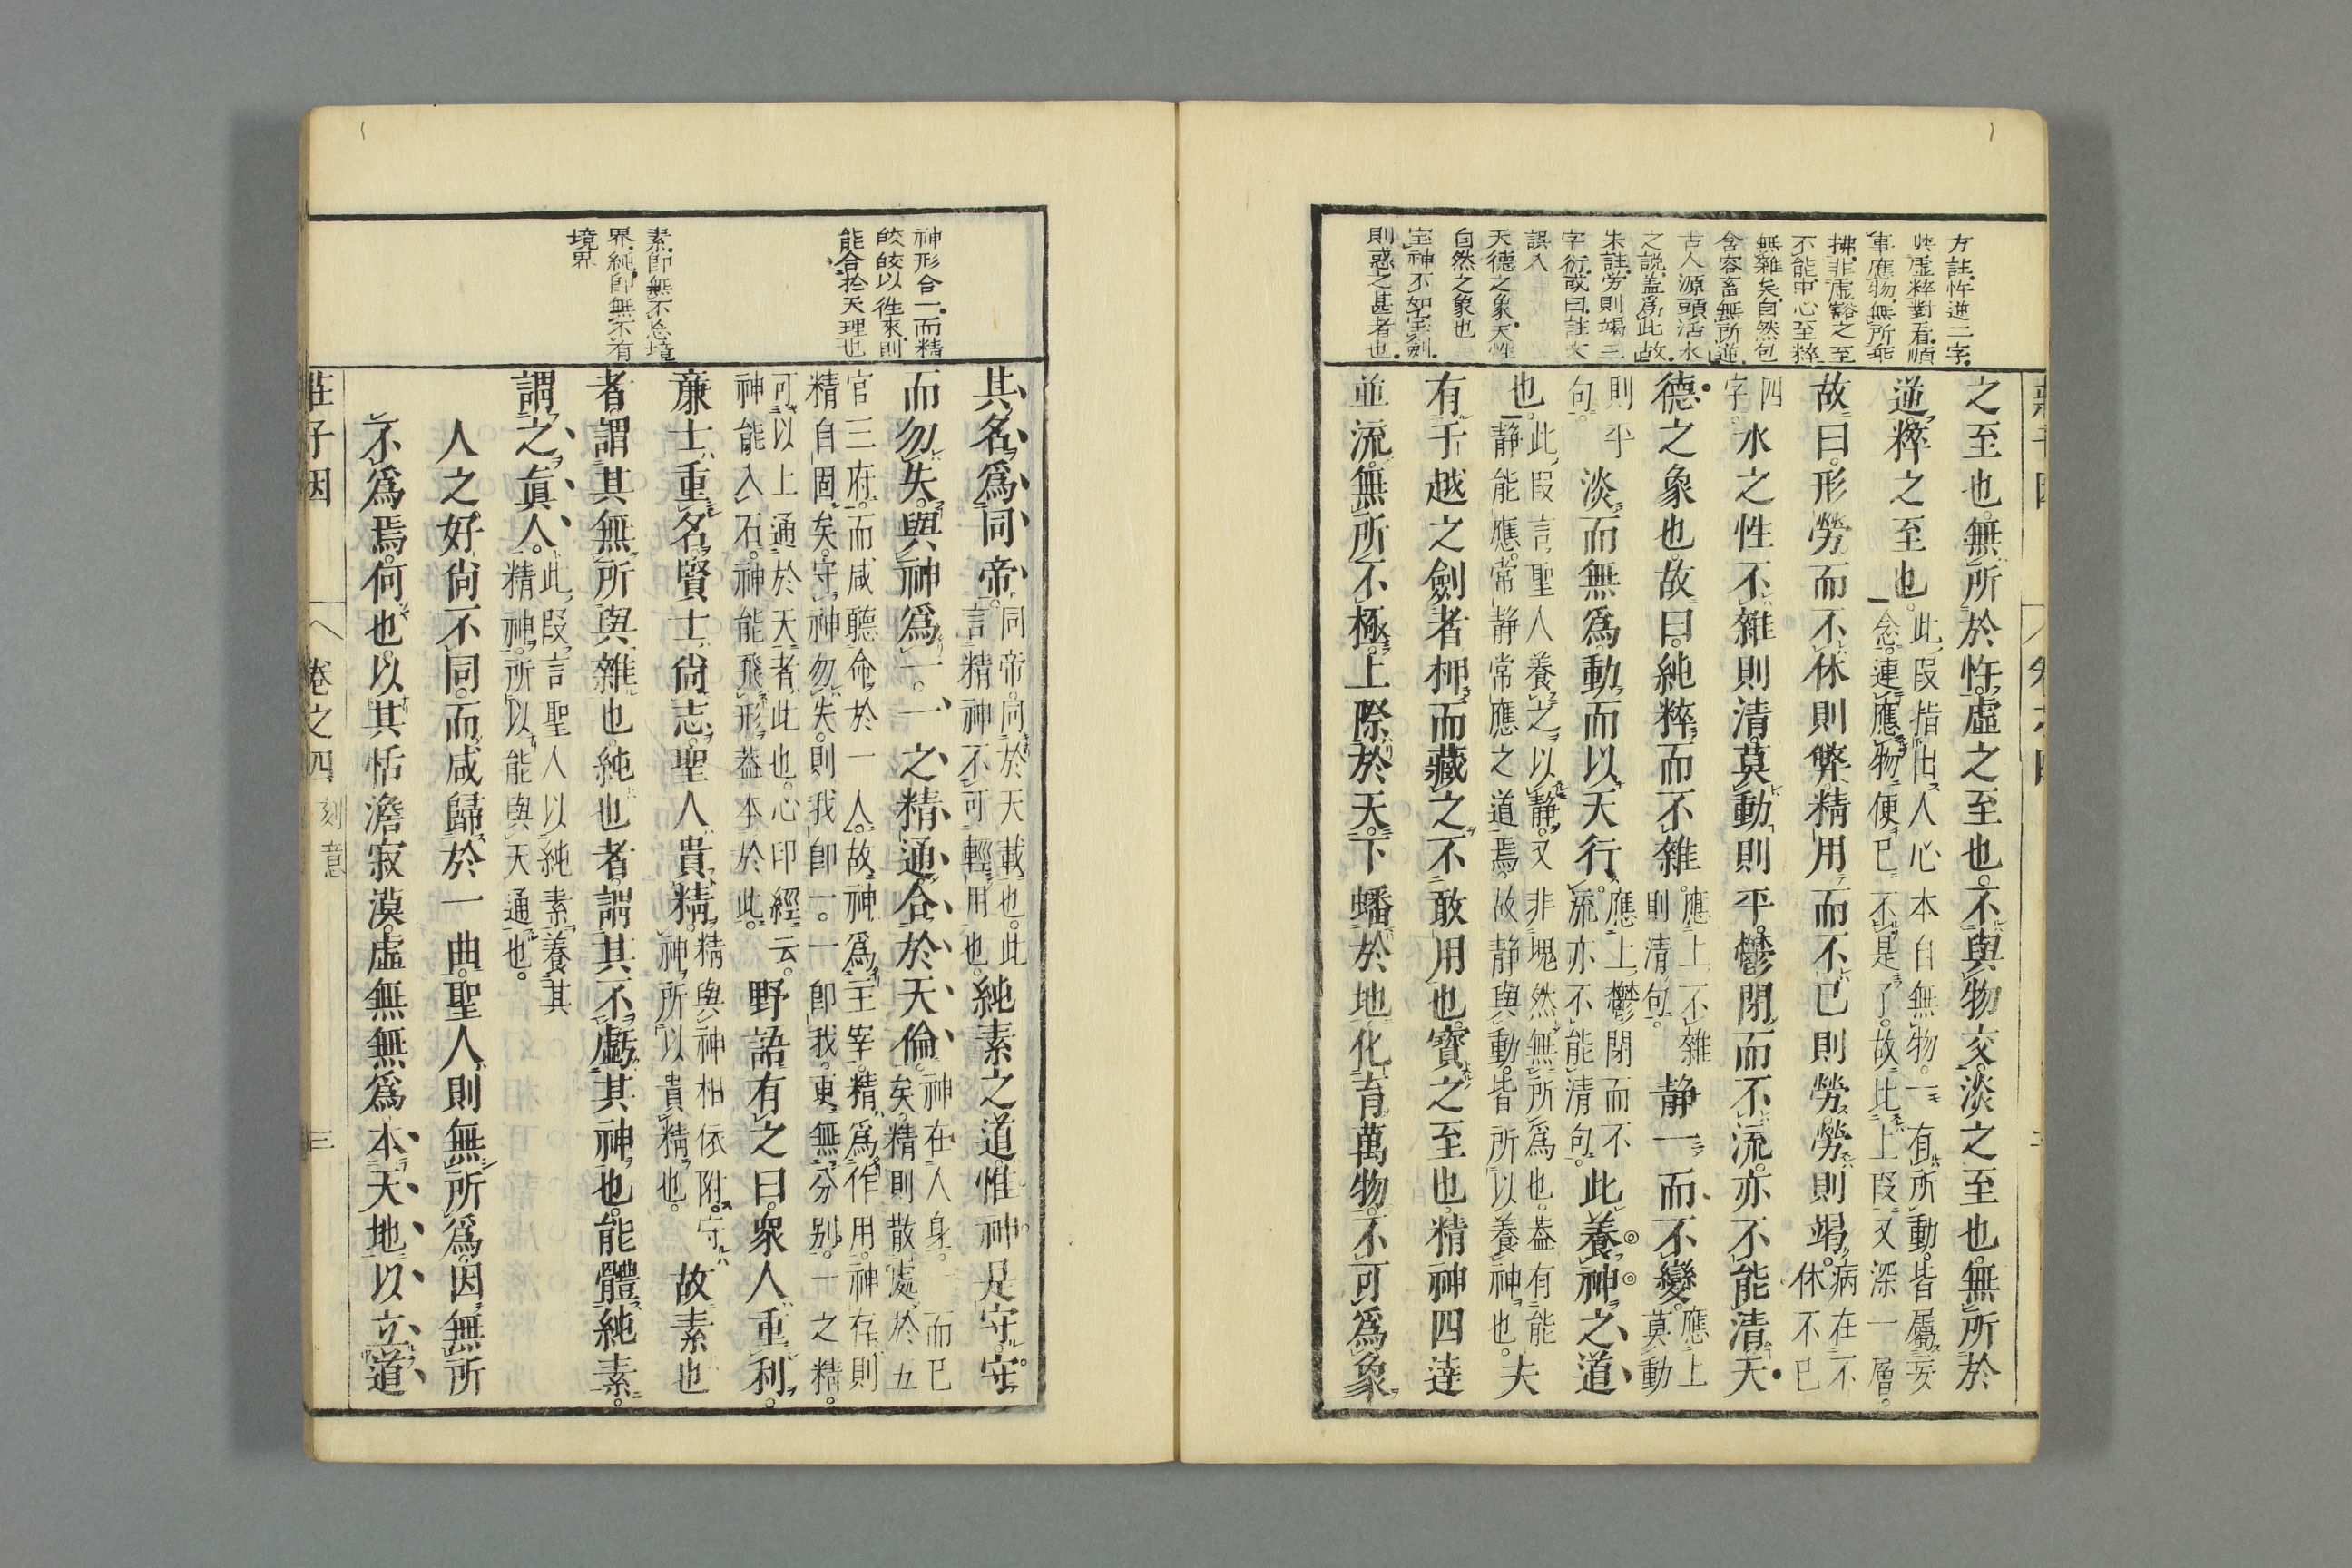 方註忤逆二字
與虛粹對看順
事應物無所乖
拂非虛豁之至
不能中心至粹
無雜矣自然包
含容畜無所逆
古人源頭活水
之說蓋爲此故
朱註勞則竭三
字衍或曰註文
誤入
天德之象天性
自然之象也
寶神不如寶劍
則惑之甚者也
之至也無所於忤虛之至也不與物交淡之至也無所於
逆粹之至也此段指出人心本自無物一有所動皆屬妄
念連應物便已不是了故此上段又深一層
故曰形勞而不休則弊精用而不已則勞勞則竭病在不
休不已
四字水之性不雜則清莫動則平鬱閉而不流亦不能清天
德之象也故曰純粹而不雜應上不雜
則清句靜一而不變應上
莫動
則平句淡而無爲動而以天行應上鬱閉而不
流亦不能清句此養神之道
也此段言聖人養之以靜又非塊然無所爲也蓋有能
靜能應常靜常應之道焉故靜與動皆所以養神也夫
有干越之劍者柙而藏之不敢用也寶之至也精神四達
並流無所不極上際於天下蟠於地化育萬物不可爲象
神形合一而精
皎皎以徃來則
能合於天理也
素卽無不忘境
界純卽無不有
境界
其名爲同帝同帝同於天載也此
言精神不可輕用也純素之道惟神是守守
而勿失與神爲一一之精通合於天倫神在人身而已
矣精則散處於五
官三府而咸聽命於一人故神爲主宰精爲作用神存則
精自固矣守神勿失則我卽一一卽我更無分别一之精
可以上通於天者此也心印經云
神能入石神能飛形蓋本於此野語有之曰衆人重利
廉士重名賢士尙志聖人貴精精與神相依附守
神所以貴精也故素也
者謂其無所與雜也純也者謂其不虧其神也能體純素
謂之眞人此段言聖人以純素養其
精神所以能與天通也
人之好尙不同而咸歸於一曲聖人則無所爲因無所
不爲焉何也以其恬澹寂漠虛無無爲本天地以立道
莊子因 卷之四 刻意 三